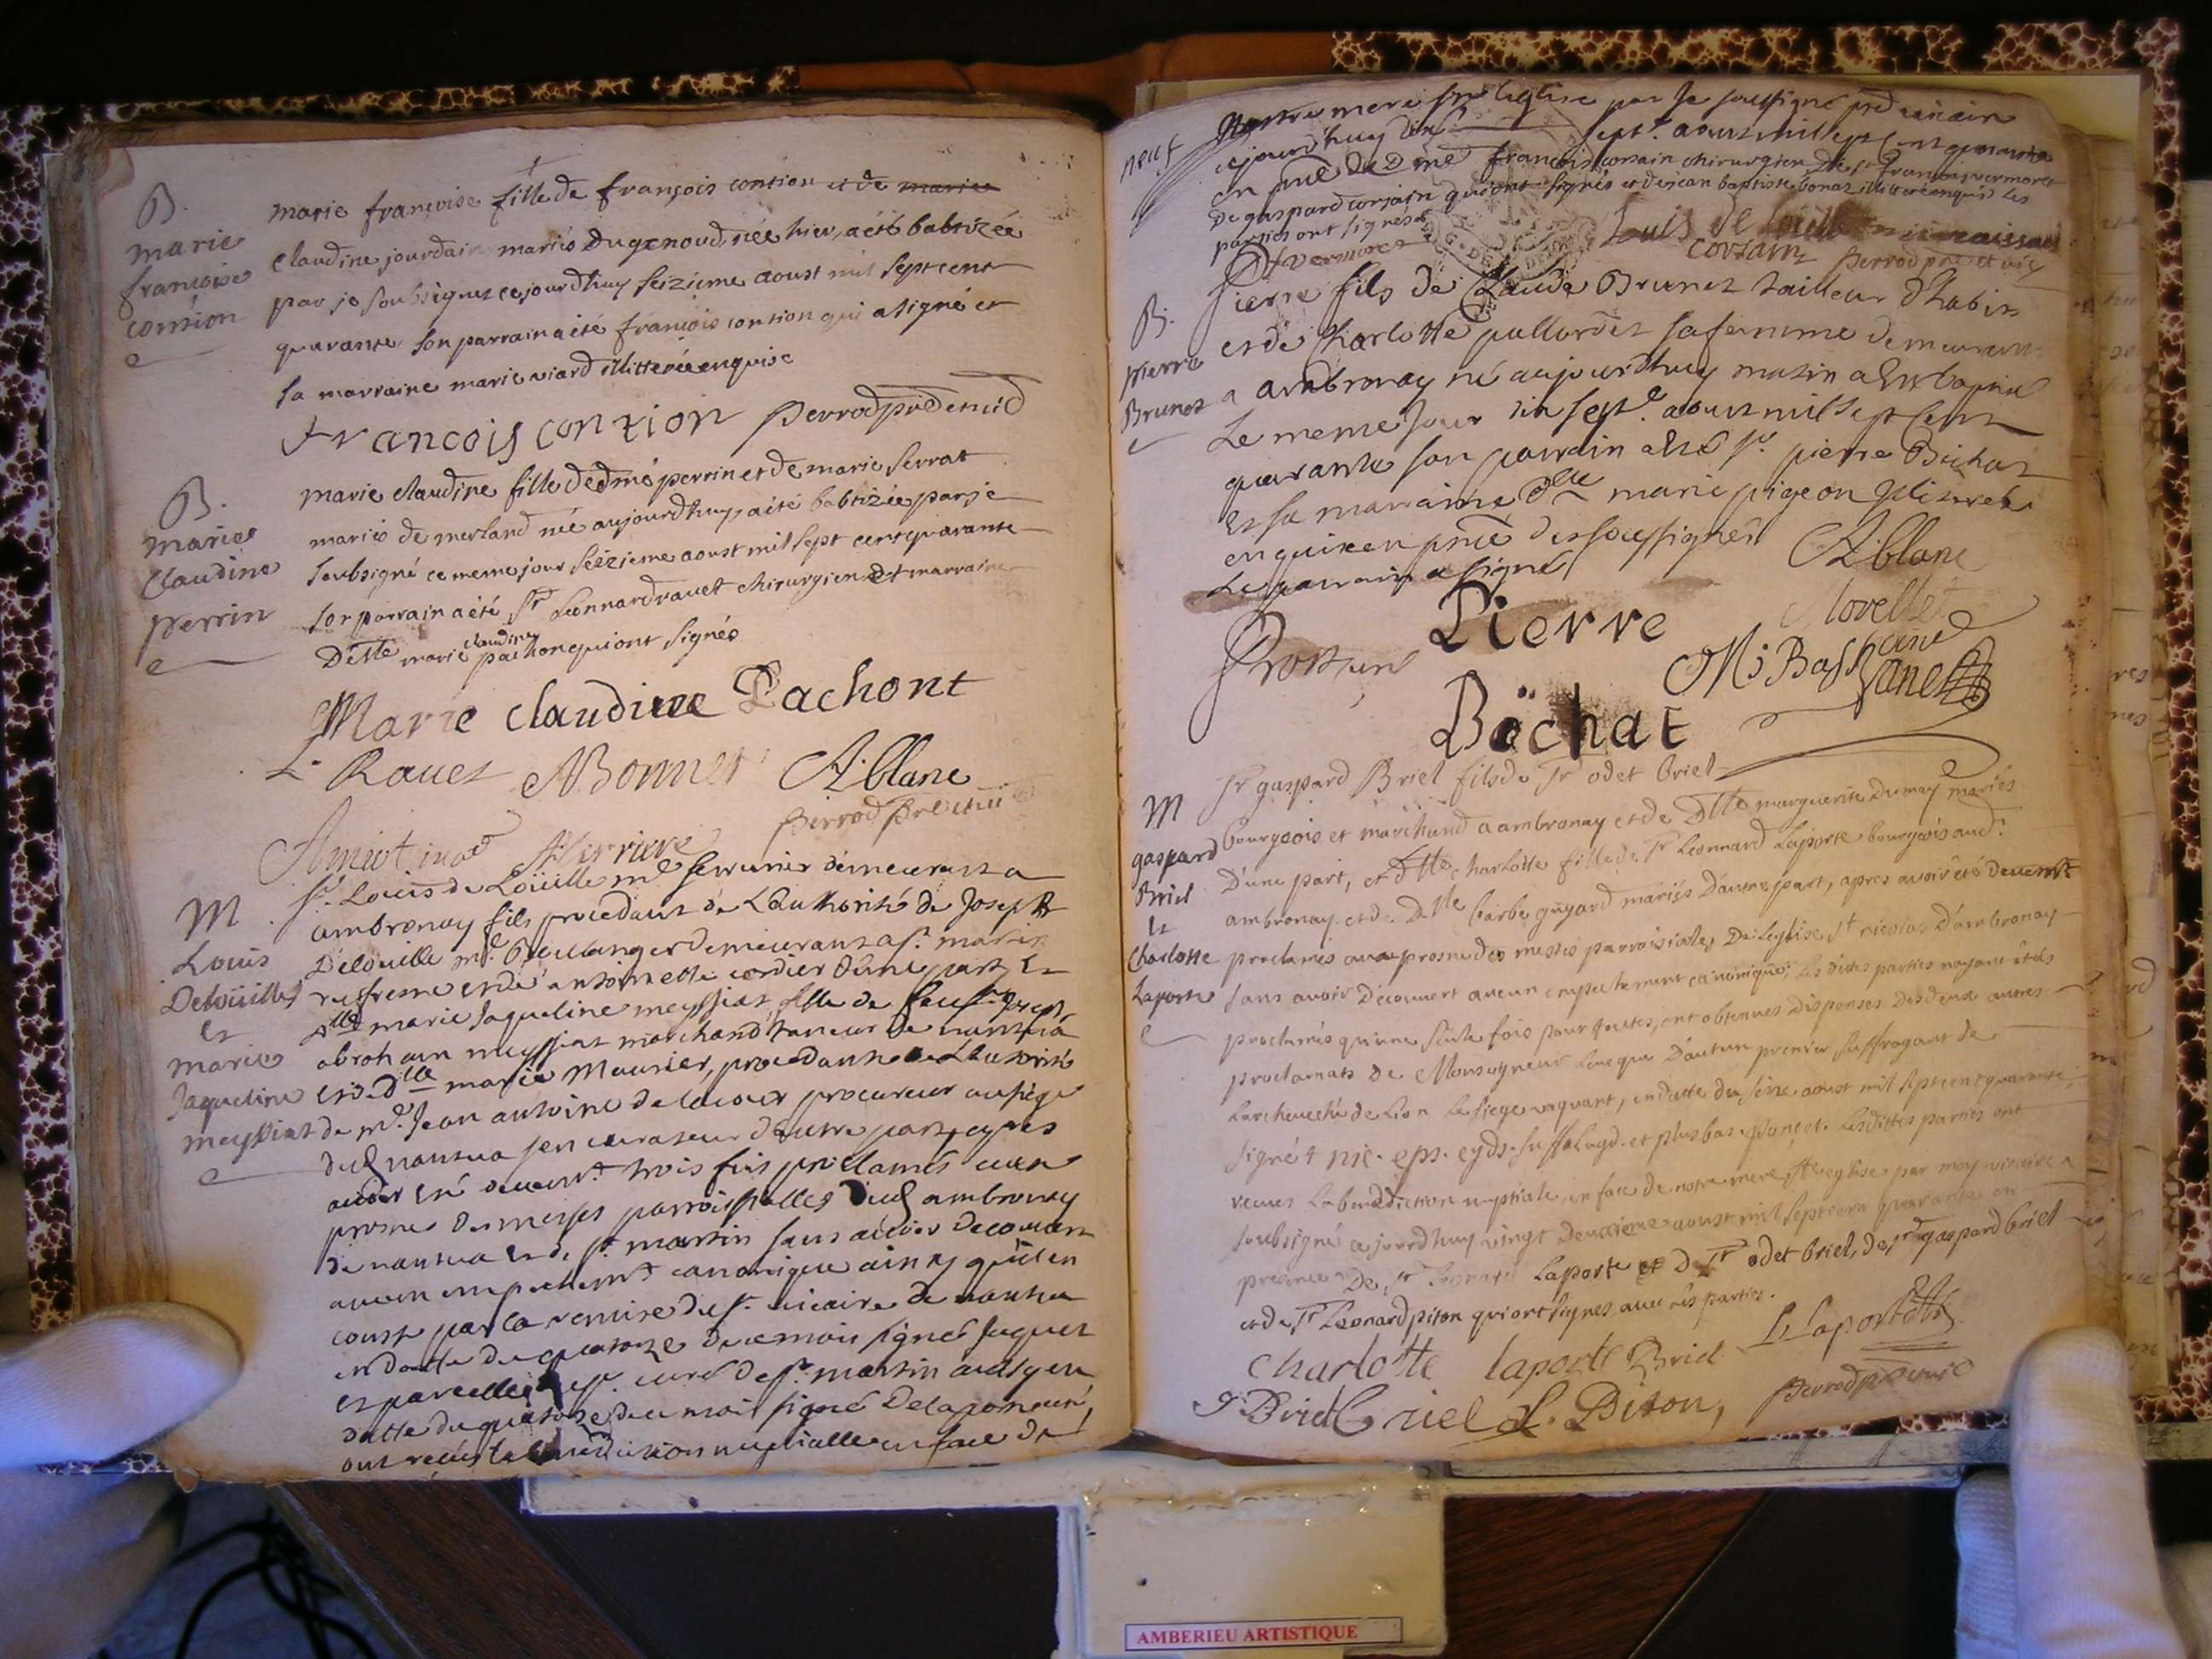 B.
marie
françoise
contion
marie françoise fille de françois contion et de marie
claudine jourdain mariés Dugenoud née hier, a été babtizée
par je soubsignez cejourdhuy seizieme aoust mil sept cent
quarante, son parrain a été françois contion qui a signé et
sa marraine marie viard illitterée enquise
francois contion perrod
B.
marie
claudine
perrin
marie claudine fille dedmé perrin et de marie serrat
mariés de merland née aujourdhuy a été babtizée par je
soubsigné ce meme jour seizieme aoust mil sept cent quarante
son parrain a été Sr Leonnard ravet chirurgien et marraine
Delle marie claudine pachon qui ont signés
Marie claudine Pachont
L. Ravet Bonnet A. blanc
perrod
M
Louis
Delouille
Et
marie
Jaqueline
meyssiat
Sr. Louis de Louille me serrurier demeurant a
ambronay fils procedant de L'authorité de Joseph
Delouille me. Boulanger demeurant a St. martin
du fresne et de antoinette cordier d'une part, Et
Dlle marie Jaqueline meyssiat fille de feu Sr. Joseph
abraham meyssiat marchand tanneur de nantua
et de dlle marie Maurier, procedante de L'autorité
de me. Jean antoine delacour procureur au siege
dud nantua son curateur d'autre part, apres
avoir Eté trois fois proclamés aux
prosnes des messes parroissialles dud ambronay
de nantua et de St. martin sans avoir decouvert
aucun empechemt canonique ainsy qu'il en
conste par la remise du Sr. vicaire de nantua
en datte du quatorze de ce mois signé Juguet
Et parcelle du Sr. curé de St. martin aussy en
datte du quatorze du mois signé
ont reçus la benediction nuptialle en face de
neuf
Nostre mere Ste Eglise par Je soussigné
cejourdhuy dix sept. aoust mil sept cent quarante
en de françois corsain chirurgien de Sr françois vermoret
de gaspard corsain qui ont signés et de jean baptiste bonaz illitteré enquis les
parties ont signés
vermoret Louis de louille
corsain perrod
B.
pierre
Brunet
Pierre fils de Claude Brunet tailleur d'habits
et de Charlotte pallordet sa femme demeurant
a ambronay né aujourdhuy matin a Eté baptisé
Le meme jour dix sept. aoust mil sept Cent
quarante son parrain a Eté Sr. pierre Bichat
Et sa marraine Dlle marie pigeon illiterée
enquise en pnce des soussignés
Le parrain a signé A. blanc
Pierre Movellet
Bochat
M
gaspard
Briel
Et
Charlotte
Laporte
Sr gaspard Briel fils de Sr odet briel
bourgeois et marchand a ambronay et de Dlle marguerite Dumay mariés
D'une part, et Dlle charlotte fille de Sr Leonnard Laporte bourgeois aud.
ambronay et de Delle barbe guyard mariés D'autre part, apres avoir été
proclamés aux prosnes des messes parroissiales De Leglise St nicolas D'ambronay
sans avoir decouvert aucun empechement canonique, les dites parties n'ayant étés
proclamés qu'une seule fois pour toutes, ont obtenues dispenses des deux autres
proclamats de Monseigneur Leveque D'autun premier suffragant de
Larcheveché de Lion Le siege vaquant, en datte du seize aoust mil sept cent quarante,
signé et plus bas Lesdittes parties ont
reçues La benediction nuptiale en face de notre mere Ste eglise par moy vicaire
soubsigné cejourdhuy vingt deuxieme aoust mil sept cent quarante en
presence De Sr Leonard Laporte et De Sr odet briel, de Sr gaspard briel
et de Sr Leonard piton qui ont signes avec les parties.
charlotte laporte Briel L Laporte
J Briel Briel L. Piton, perrod
AMBERIEU ARTISTIQUE